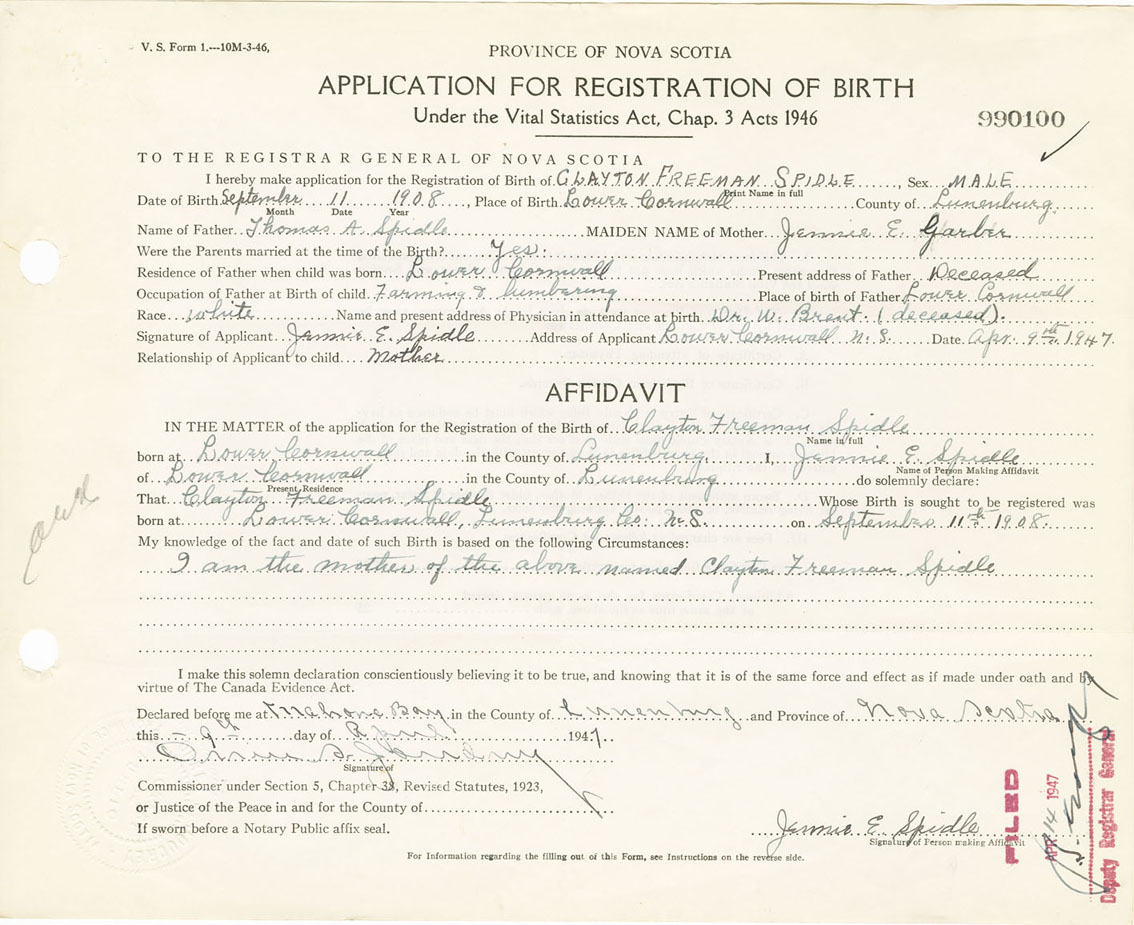 V. S. Form 1.---10M-3-46,
PROVINCE OF NOVA SCOTIA
APPLICATION FOR REGISTRATION OF BIRTH
Under the Vital Statistics Act, Chap. 3 Acts 1946
990100
TO THE REGISTRAR GENERAL OF NOVA SCOTIA
I hereby make application for the Registration of Birth of CLAYTON FREEMAN SPIDLE, Sex MALE
Print Name in full
Date of Birth September 11 1908, Place of Birth Lower Cornwall County of Lunenburg
Month Date Year
Name of Father Thomas A. Spidle MAIDEN NAME of Mother Jennie E. Garber
Were the Parents married at the time of the Birth? Yes.
Residence of Father when child was born Lower Cornwall Present address of Father Deceased
Occupation of Father at Birth of child Farming & lumbaring Place of birth of Father Lower Cornwall
Race White Name and present address of Physician in attendance at birth Dr. W. Brent (deceased).
Signature of Applicant Jennie E. Spidle Address of Applicant Lower Cornwall N.S. Date Apr. 9th 1947.
Relationship of Applicant to child Mother
AFFIDAVIT
IN THE MATTER of the application for the Registration of the Birth of Clayton Freeman Spidle
Name in full
born at Lower Cornwall in the County of Lunenburg I, Jennie E. Spidle
Name of Person Making Affidavit
of Lower Cornwall in the County of Lunenburg do solemnly declare:
Present Residence
That Clayton Freeman Spidle Whose Birth is sought to be registered was
born at Lower Cornwall, Lunenburg Co. N.S. on September 11th 1908.
My knowledge of the fact and date of such Birth is based on the following Circumstances:
I am the mother of the above named Clayton Freeman Spidle
I make this solemn declaration conscientiously believing it to be true, and knowing that it is of the same force and effect as if made under oath and by
virtue of The Canada Evidence Act.
Declared before me at Mahone Bay in the County of Lunenburg and Province of Nova Scotia
this 9th day of April 1947
Signature of
Commissioner under Section 5, Chapter 38, Revised Statutes, 1923,
or Justice of the Peace in and for the County of
If sworn before a Notary Public affix seal.
Jennie E. Spidle
Signature of Person making Affidavit
For Information regarding the filling out of this Form, see Instructions on the reverse side.
FILED
APR 14 1947
Deputy Registrar General